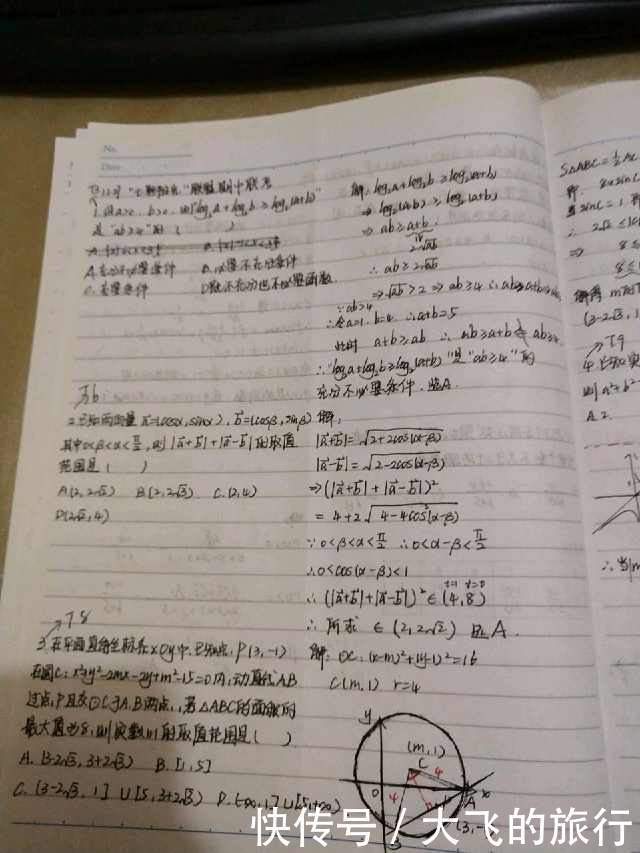 No.
Date
1. 设a>0, b>0, 则"log₂a+log₂b≥log₂(a+b)"
是"ab≥4"的 (    )
A.充分不必要条件 B.必要不充分条件
C.充要条件 D.既不充分也不必要条件
解: log₂a+log₂b≥log₂(a+b)
⇒ log₂(ab)≥log₂(a+b)
⇒ ab≥a+b
2√ab
∴ ab≥2√ab
⇒√ab≥2 ⇒ ab≥4
∵ab≥4
∴令a=1. b=4. ∴a+b=5
此时 a+b≥ab
∴"log₂a+log₂b≥log₂(a+b)"是"ab≥4"的
充分不必要条件. 选A.
T6
2.已知两向量 a⃗=(cosα,sinα), b⃗=(cosβ,sinβ)
其中0<β<α<π/2, 则|a⃗+b⃗|+|a⃗-b⃗|的取值
范围是 (    )
A.(2,2√2) B.(2,2√3) C.(2,4)
D.(2√2,4)
解:
|a⃗+b⃗|=√2+2cos(α-β)
|a⃗-b⃗|=√2-2cos(α-β)
⇒(|a⃗+b⃗|+|a⃗-b⃗|)²
= 4+2√4-4cos²(α-β)
∵0<β<α<π/2 ∴0<α-β<π/2
∴0<cos(α-β)<1
∴(|a⃗+b⃗|+|a⃗-b⃗|)²∈(4,8)
∴所求 ∈(2,2√2) 选A.
T8
3.在平面直角坐标系xOy中.已知点P(3,-1)
在圆C: x²+y²-2mx-2y+m²-15=0内,动直线AB
过点P且交⊙C于A.B两点,若△ABC的面积的
最大值为8,则实数m的取值范围是 (    )
A.(3-2√3,3+2√3) B.[1,5]
C.(3-2√3,1]∪[5,3+2√3) D.(-∞,1]∪[5,+∞)
解: ⊙C:(x-m)²+(y-1)²=16
C(m,1) r=4
y
(m,1)
C
4
4
O
A
x
B
(3,-1)
S△ABC=½AC
T9
4.已知实
则a²+b²
A.2.
快传号/大飞的旅行